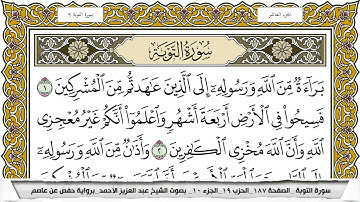 الجزء العاشر
سورة التوبة ٩
سُورَةُ التَّوْبَةِ
بَرَآءَةٌ مِّنَ ٱللَّهِ وَرَسُولِهِۦٓ إِلَى ٱلَّذِينَ عَٰهَدتُّم مِّنَ ٱلْمُشْرِكِينَ ١
فَسِيحُوا۟ فِى ٱلْأَرْضِ أَرْبَعَةَ أَشْهُرٍ وَٱعْلَمُوٓا۟ أَنَّكُمْ غَيْرُ مُعْجِزِى
ٱللَّهِ وَأَنَّ ٱللَّهَ مُخْزِى ٱلْكَٰفِرِينَ ٢ وَأَذَٰنٌ مِّنَ ٱللَّهِ وَرَسُولِهِۦٓ
سورة التوبة _ الصفحة ١٨٧ _ الحزب ١٩ _ الجزء ١٠ _ بصوت الشيخ عبد العزيز الأحمد _ برواية حفص عن عاصم